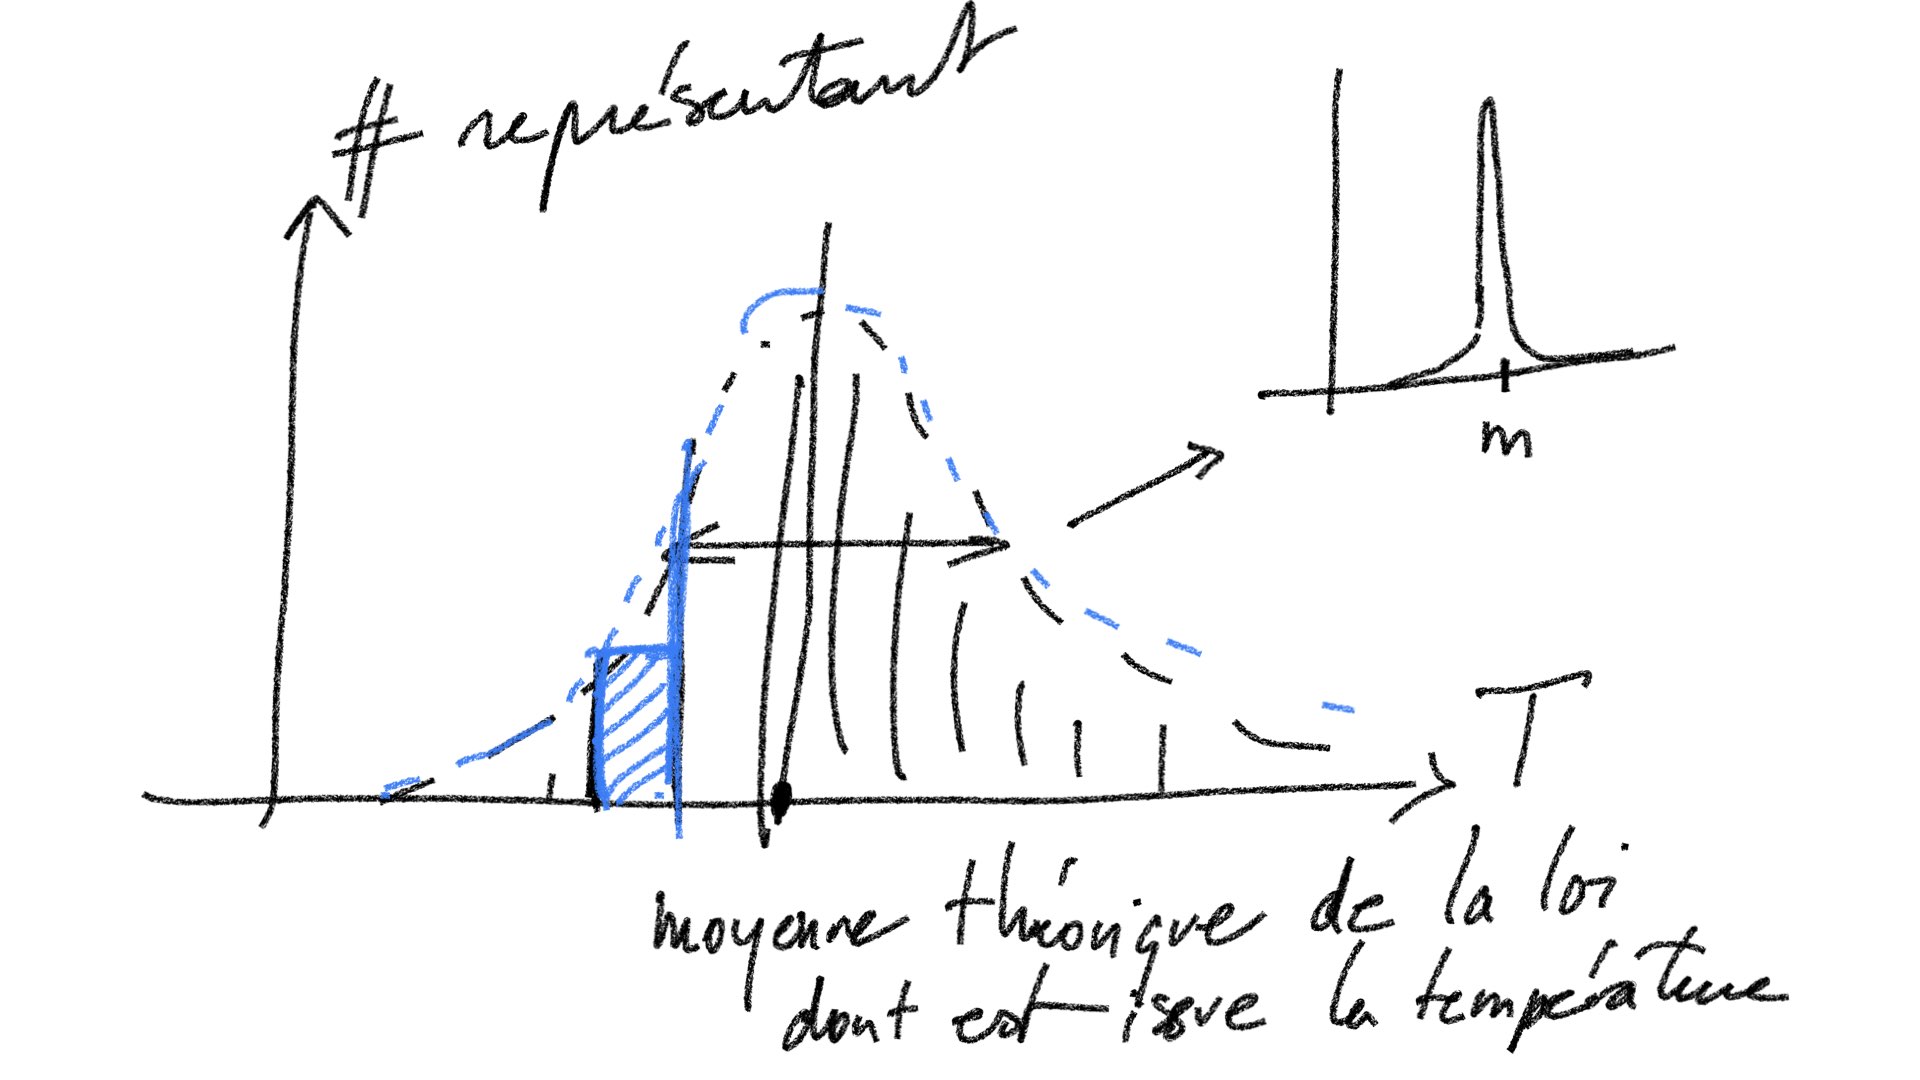 # représentant
m
T
moyenne théorique de la loi
dont est issue la température